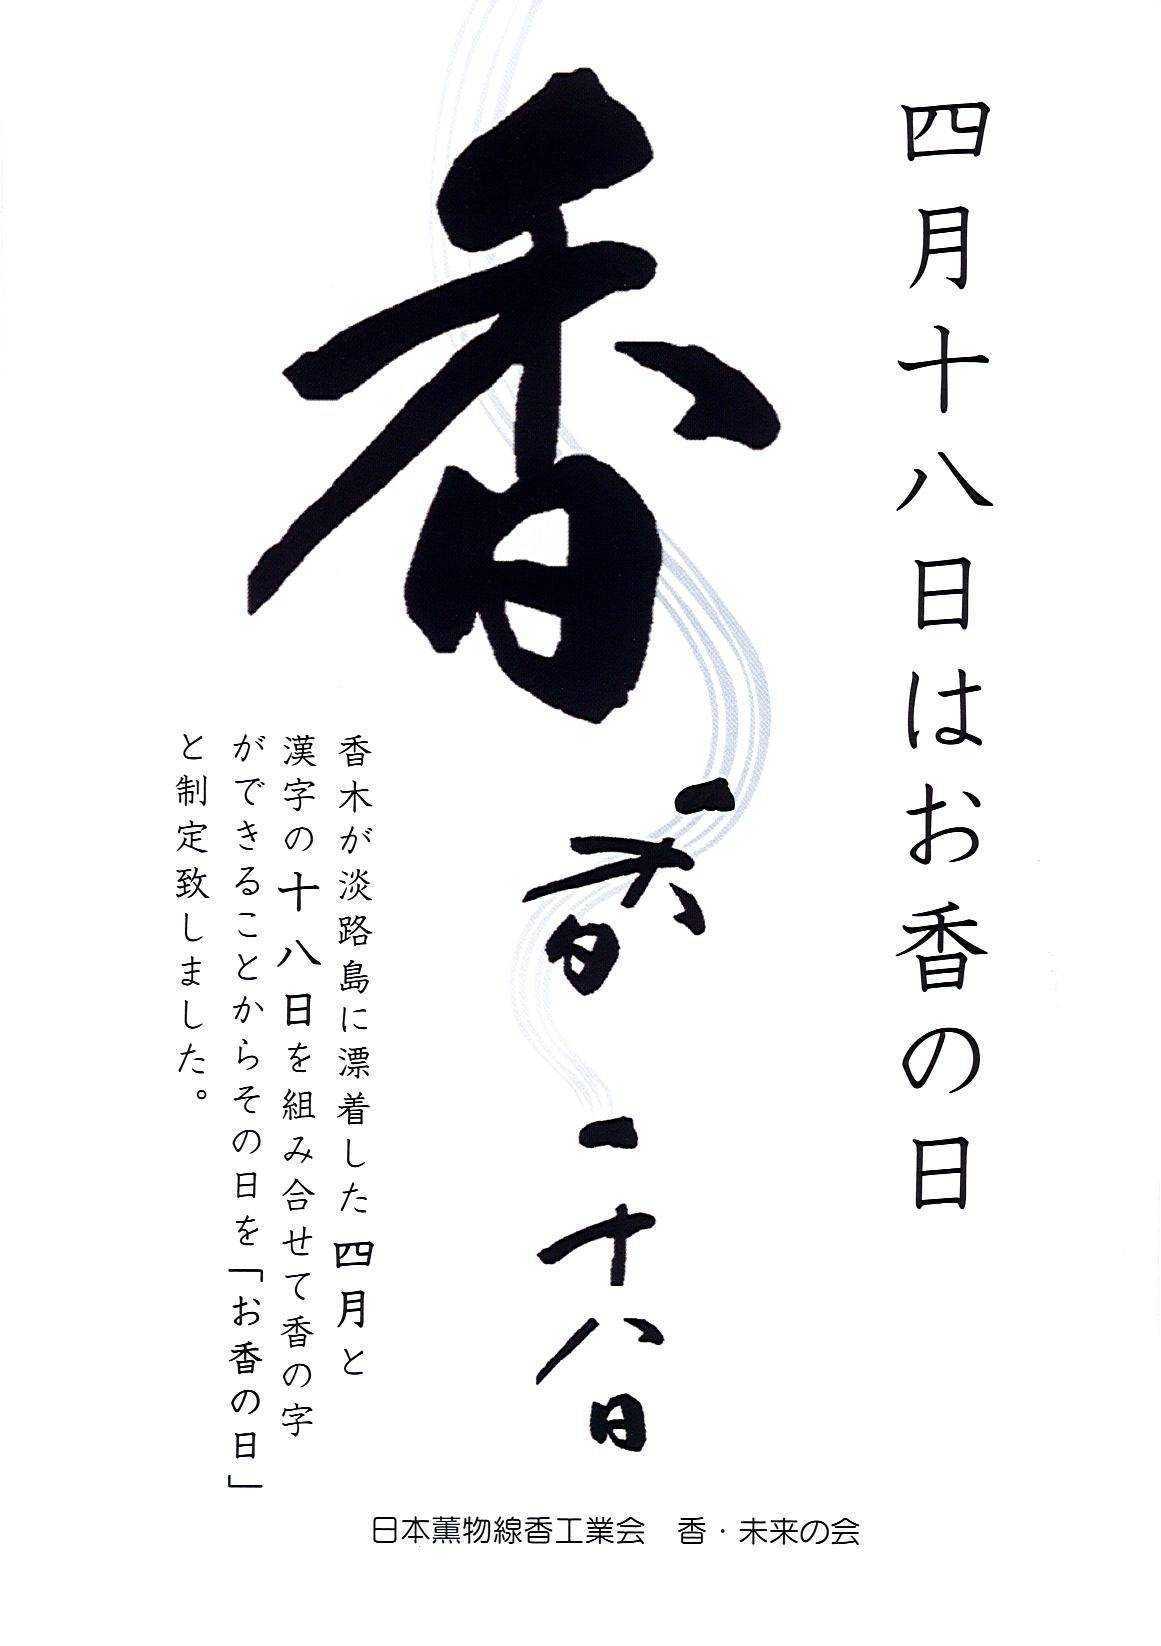 四月十八日はお香の日
香
一十八日
香木が淡路島に漂着した四月と
漢字の十八日を組み合せて香の字
ができることからその日を「お香の日」
と制定致しました。
日本薫物線香工業会　香・未来の会